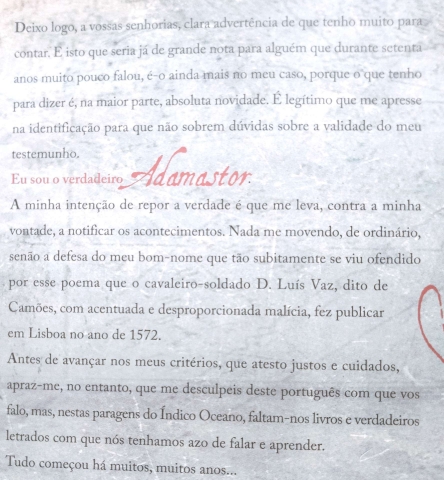 Deixo logo, a vossas senhorias, clara advertência de que tenho muito para
contar. E isto que seria já de grande nota para alguém que durante setenta
anos muito pouco falou, é-o ainda mais no meu caso, porque o que tenho
para dizer é, na maior parte, absoluta novidade. É legítimo que me apresse
na identificação para que não sobrem dúvidas sobre a validade do meu
testemunho.
Eu sou o verdadeiro Adamastor.
A minha intenção de repor a verdade é que me leva, contra a minha
vontade, a notificar os acontecimentos. Nada me movendo, de ordinário,
senão a defesa do meu bom-nome que tão subitamente se viu ofendido
por esse poema que o cavaleiro-soldado D. Luís Vaz, dito de
Camões, com acentuada e desproporcionada malícia, fez publicar
em Lisboa no ano de 1572.
Antes de avançar nos meus critérios, que atesto justos e cuidados,
apraz-me, no entanto, que me desculpeis deste português com que vos
falo, mas, nestas paragens do Índico Oceano, faltam-nos livros e verdadeiros
letrados com que nós tenhamos azo de falar e aprender.
Tudo começou há muitos, muitos anos...